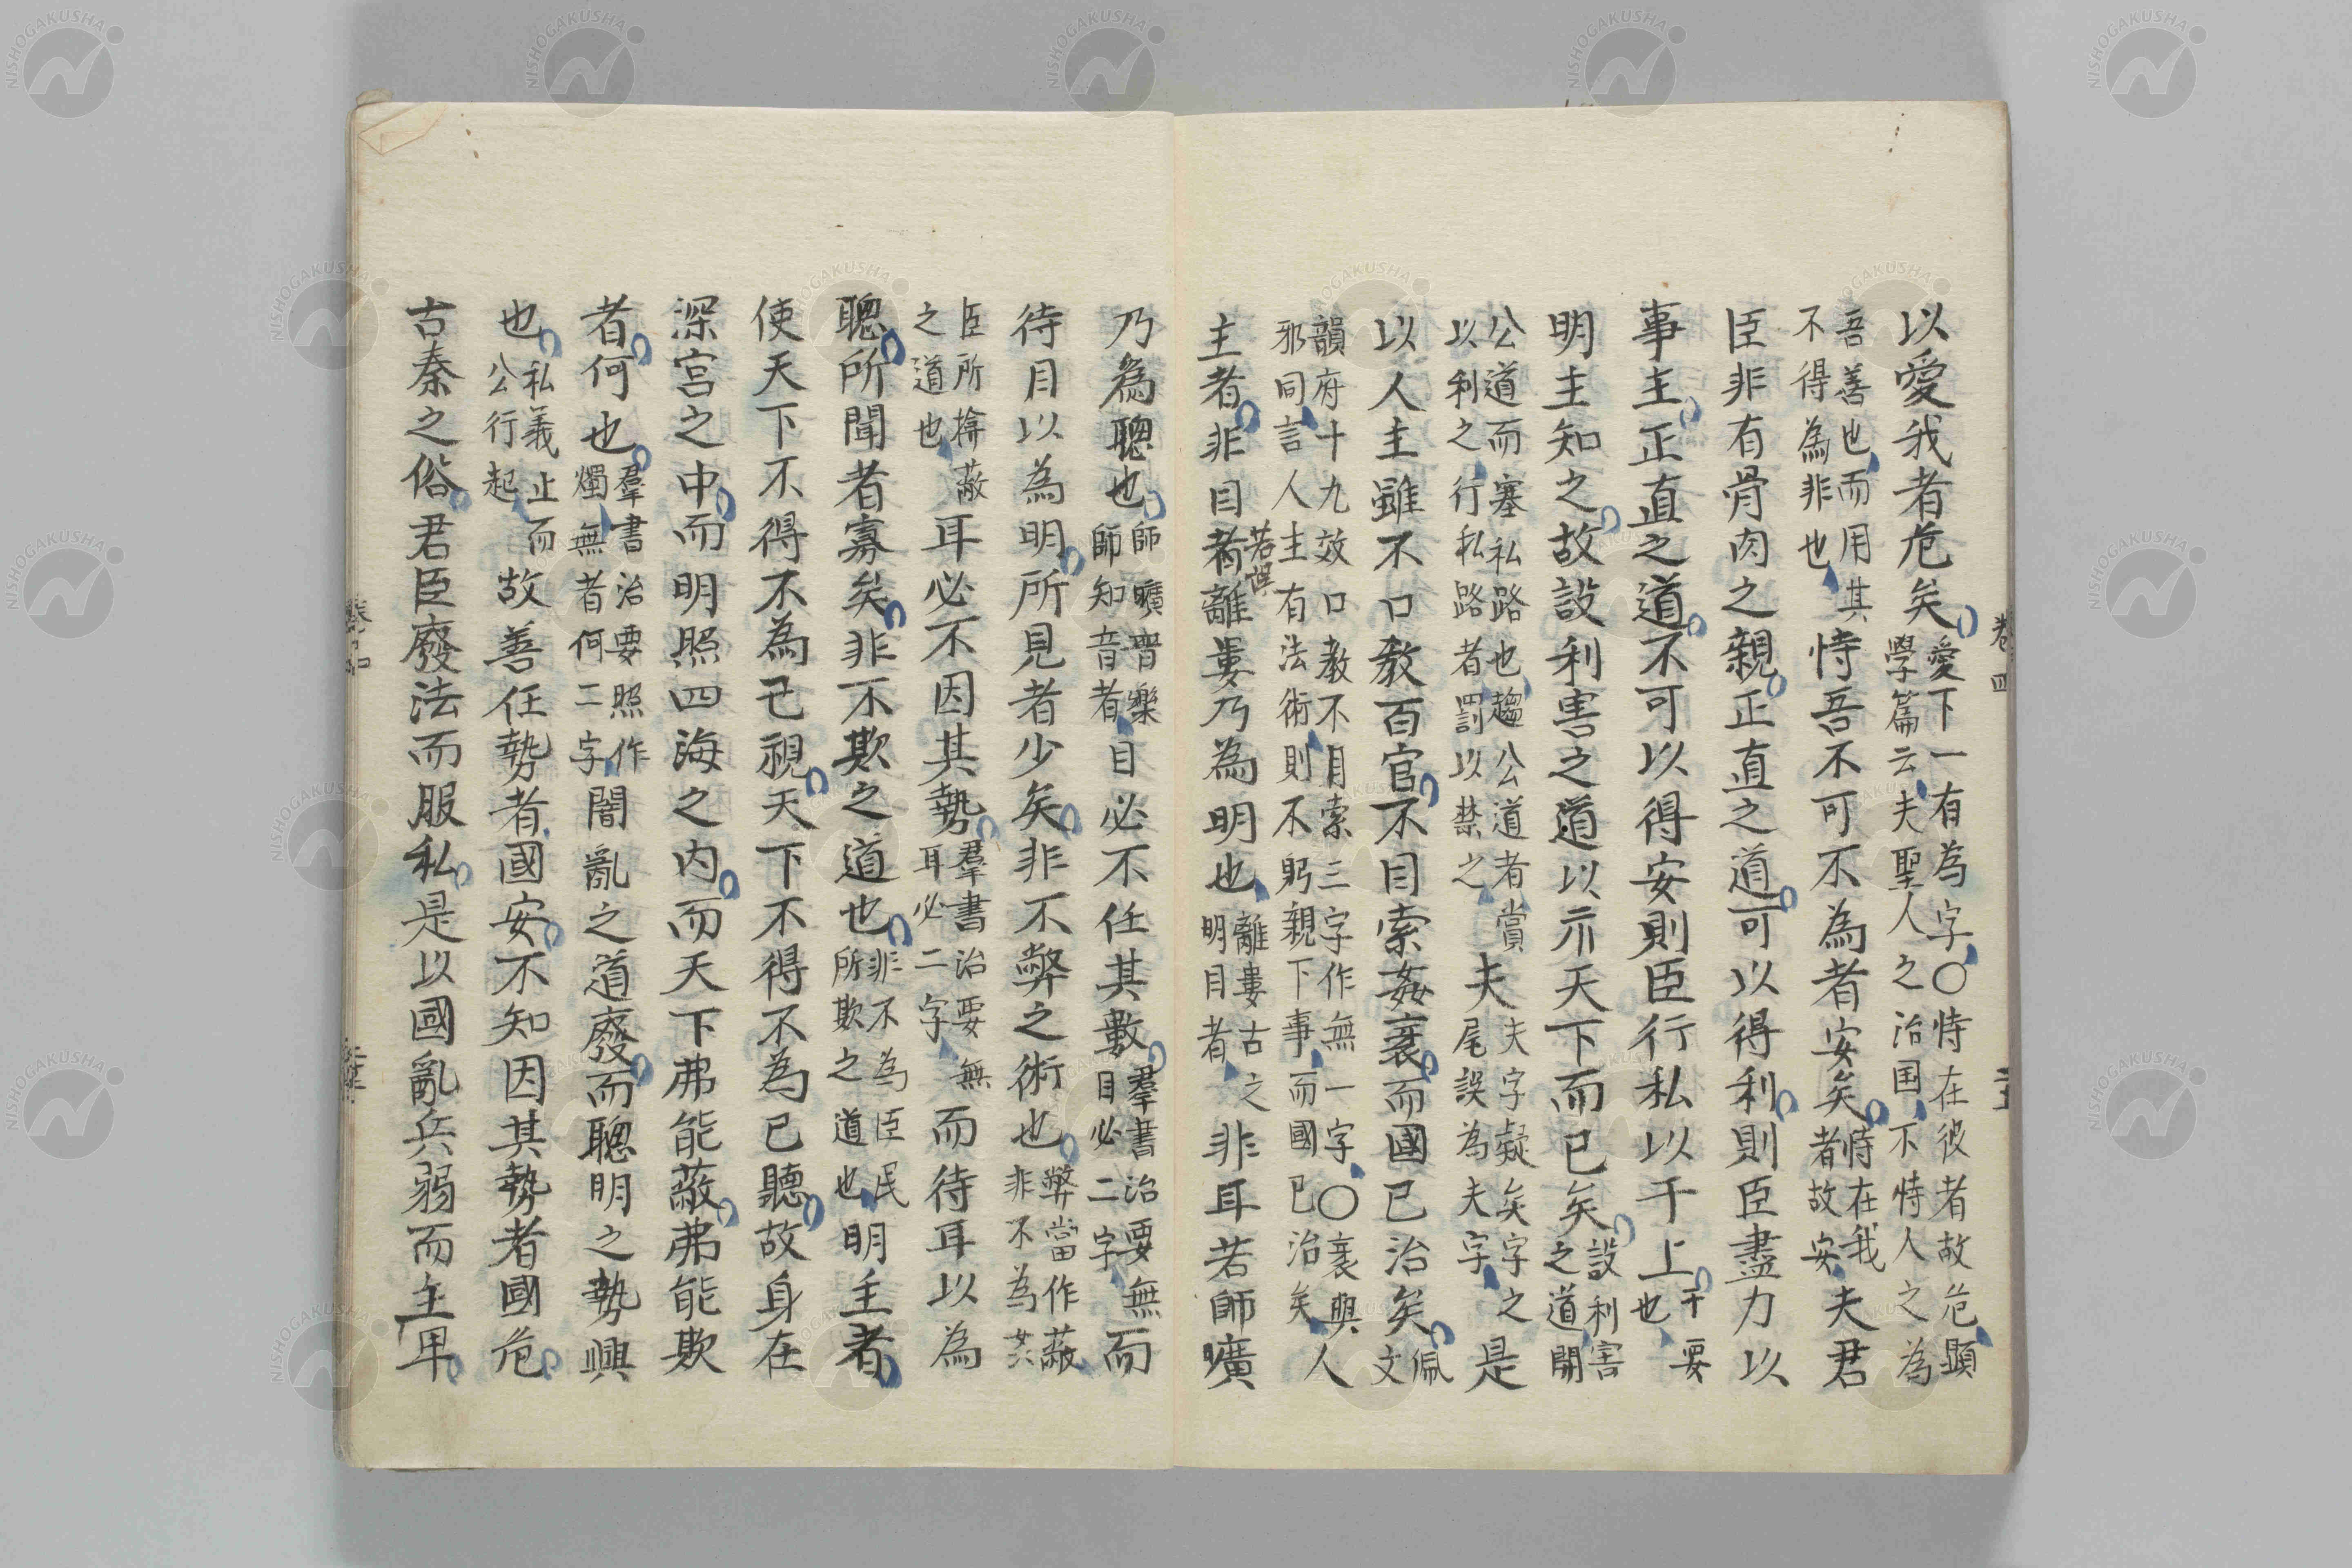 以愛我者危矣愛下一有為字〇恃在彼者故危顯學篇云夫聖人之治国不恃人之為
吾善也而用其不得為非也恃吾不可不為者安矣恃在我者故安夫君
臣非有骨肉之親正直之道可以得利則臣盡力以
事主正直之道不可以得安則臣行私以干上干要也
明主知之故設利害之道以示天下而已矣設利害之道開
公道而塞私路也趨公道者賞以利之行私路者罰以禁之夫夫字疑矣字之尾誤為夫字是
以人主雖不口教百官不目索姦衺而國已治矣佩文
韻府十九效口教不目索三字作無一字〇衺與邪同言人主有法術則不躬親下事而國已治矣人
主者非目者離婁乃為明也離婁古之明目者非耳若師曠
若誤
乃為聰也師曠晋樂師知音者目必不任其數羣書治要無目必二字而
待目以為明所見者少矣非不弊之術也弊當作蔽非不為其
臣所揜蔽之道也耳必不因其勢羣書治要無耳必二字而待耳以為
聰所聞者寡矣非不欺之道也非不為臣民所欺之道也明主者
使天下不得不為己視天下不得不為已聽故身在
深宮之中而明照四海之內而天下弗能蔽弗能欺
者何也羣書治要照作燭無者何二字闇亂之道廢而聰明之勢興
也私義止而公行起故善任勢者國安不知因其勢者國危
古秦之俗君臣廢法而服私是以國亂兵弱而主卑
卷四